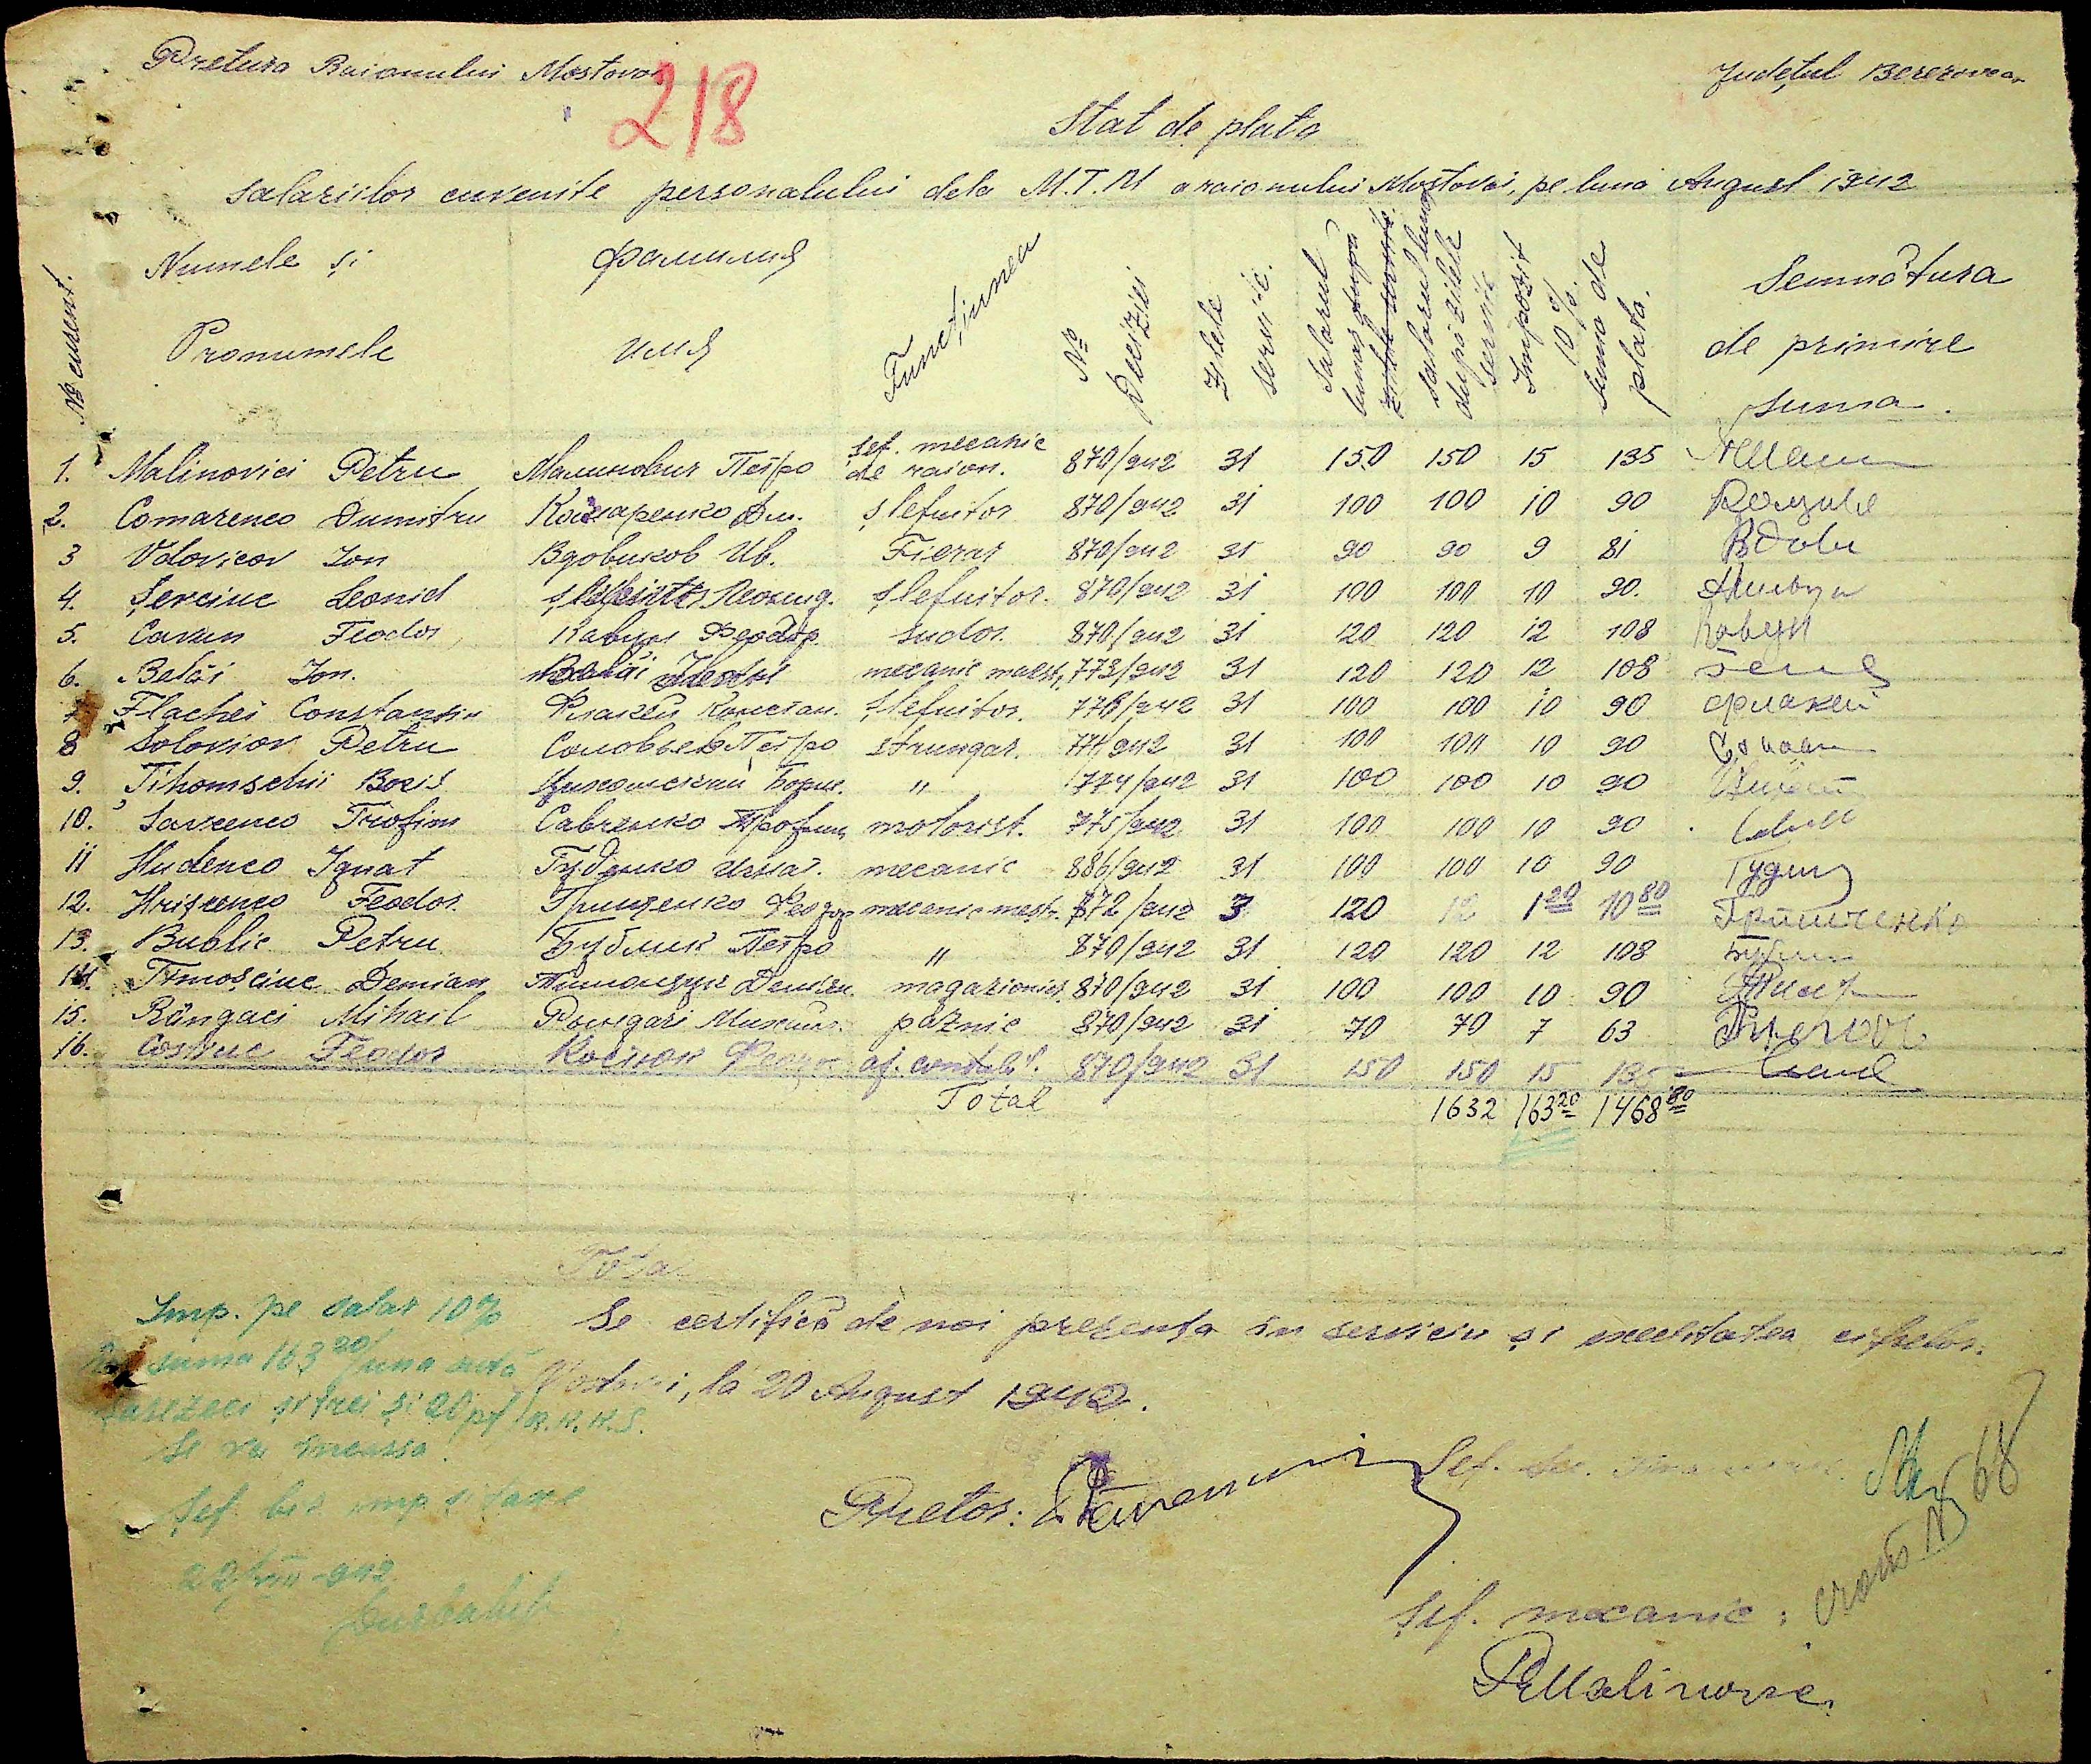 Pretura Raionului Mostovoi
Județul Berezovca
218
Stat de plata
Salariilor cuvenite personalului dela M.T.M a raionului Mostovoi, pe luna August 1942
№ curent.
Numele și Pronumele
Фамилия имя
Funcțiunea
№ Deciziei
Zilele servic.
Salarul lunar după zilele servite
Salarul lunar după zilele servite
Impozit 10%.
Suma de plata.
Semnătura de primire suma.
1. Malinovici Petru Малинович Петро șef. mecanic de raion. 870/942 31 150 150 15 135
2. Comarenco Dumitru Комаренко Дм. șlefuitor 870/942 31 100 100 10 90
3 Vdovicov Ion Вдовиков Ив. Fierar 870/942 31 90 90 9 81 Вдови
4. Șevciuc Leonid Леонид. șlefuitor. 870/942 31 100 100 10 90.
5. Cavun Feodor Кавун Феодор. sudor. 870/942 31 120 120 12 108 Кавун
6. Belăi Ion. mecanic maestr. 773/942 31 120 120 12 108
7 Flachei Constantin Флакей Констан. șlefuitor. 778/942 31 100 100 10 90 Флакей
8 Soloviov Petru Соловьев Петро strungar. 771/942 31 100 100 10 90
9. Tihomschii Boris Борис. " 774/942 31 100 100 10 90
10. Savcenco Trofim Савченко Трофим motorist. 775/942 31 100 100 10 90
11 Hudenco Ignat Гуденко Игнат. mecanic 886/942 31 100 100 10 90
12. Hrișcenco Feodor Грищенко Феодор mecanic mestr. 872/942 3 120 12 1 20 10 80 Грищенко
13. Bublic Petru Бублик Петро " 870/942 31 120 120 12 108
14. Timoșciuc Demian Тимощук Демян magazioner 870/942 31 100 100 10 90
15. Rângaci Mihail Рынгачи Михаил. paznic 870/942 31 70 70 7 63
16. Costiuc Feodor Костюк Феодор aj. contabil. 870/942 31 150 150 15 135
Total 1632 163 20 1468 80
Total
Imp. pe salar 10%
suma 163 20 /una sută
șasezeci și trei și 20 pf/ R.K.K.S.
Se va încassa.
Șef. bir. imp. și taxe
22/VIII-942
Se certifică de noi prezența în serviciu și exactitatea cifrelor.
Mostovoi, la 20 August 1942.
Pretor:
Șef. Ser. Financiar.
68
Șef. mecanic:
PMalinovici